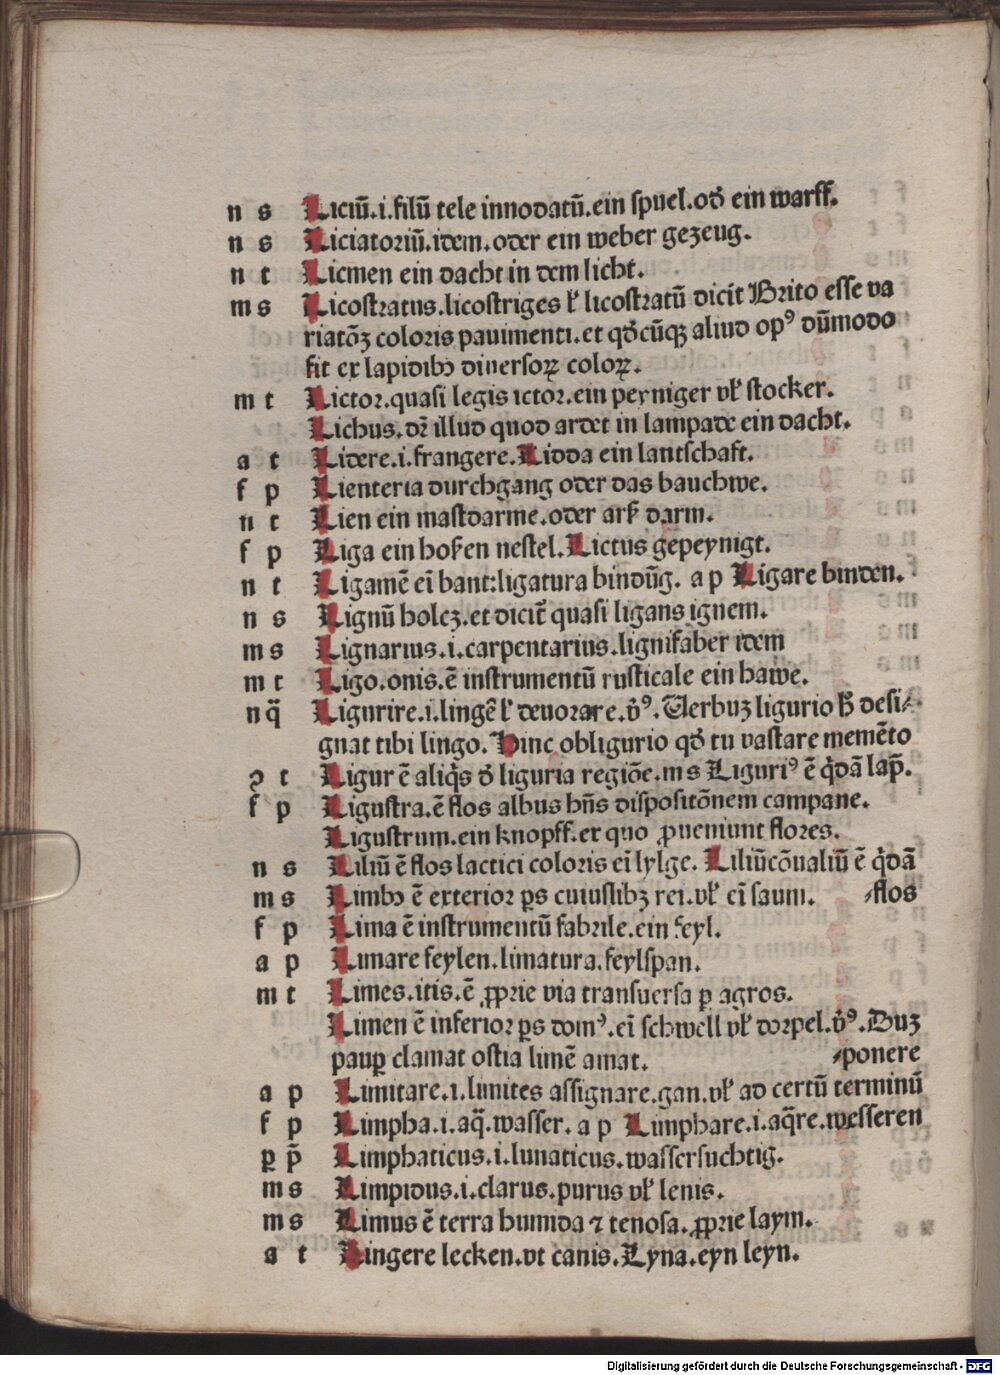 n s Liciū.i.filū tele innodatū.ein spuel.oď ein warff.
n s Liciatoriū.idem.oder ein weber gezeug.
n t Licmen ein dacht in dem licht.
m s Licostratus.licostriges ł licostratū dicit Brito esse va
riatōꝫ coloris pauimenti.et qďcūqꝫ aliud opꝰ dūmodo
fit ex lapidibꝫ diuersoꝝ coloꝝ.
m t Lictor.quasi legis ictor.ein peyniger vł stocker.
Lichus.dr̄ illud quod ardet in lampade ein dacht.
a t Lidere.i.frangere.Lidda ein lantschaft.
f p Lienteria durchgang oder das bauchwe.
n t Lien ein mastdarme.oder arß darm.
f p Liga ein hosen nestel.Lictus gepeynigt.
n t Ligamē ei̅ bant:ligatura bindūg. a p Ligare binden.
n s Lignū holcz.et dicit̄ quasi ligans ignem.
m s Lignarius.i.carpentarius.lignifaber idem
m t Ligo.onis.ē instrumentū rusticale ein hawe.
n q̄ Ligurire.i.lingē ł deuorare.v̓ꝰ.Verbuꝫ ligurio ꝧ desi⸗
gnat tibi lingo.Hinc obligurio qď tu vastare memēto
ꝯ t Ligur ē aliq̄s ď liguria regiōe.m s Liguriꝰ ē q̇dā lap̄.
f p Ligustra.ē flos albus hn̄s dispositōnem campane.
Ligustrum.ein knopff.ex quo ꝓueniunt flores.
n s Liliū ē flos lactici coloris ei̅ lylge. Liliūcōualiū ē q̇dā
m s Limbꝫ ē exterior ꝑs cuiuslibꝫ rei.vł ei̅ saum. ⸗flos
f p Lima ē instrumentū fabrile.ein feyl.
a p Limare feylen.limatura.feylspan.
m t Limes.itis.ē ꝓprie via transuersa ꝑ agros.
Limen ē inferior ꝑs domꝰ.ei̅ schwell vł dorpel.v̓ꝰ.Duꝫ
pauꝑ clamat ostia limē amat. ⸗ponere
a p Limitare.i.limites assignare.gan.vł ad certū terminū
f p Limpha.i.aq̄.wasser. a p Limphare.i.aq̄re.wesseren
ꝑ p̄ Limphaticus.i.lunaticus.wassersuchtig.
m s Limpidus.i.clarus.purus vł lenis.
m s Limus ē terra humida ⁊ tenosa.ꝓprie laym.
a t Lingere lecken.vt canis.Lyna.eyn leyn.
Digitalisierung gefördert durch die Deutsche Forschungsgemeinschaft - DFG